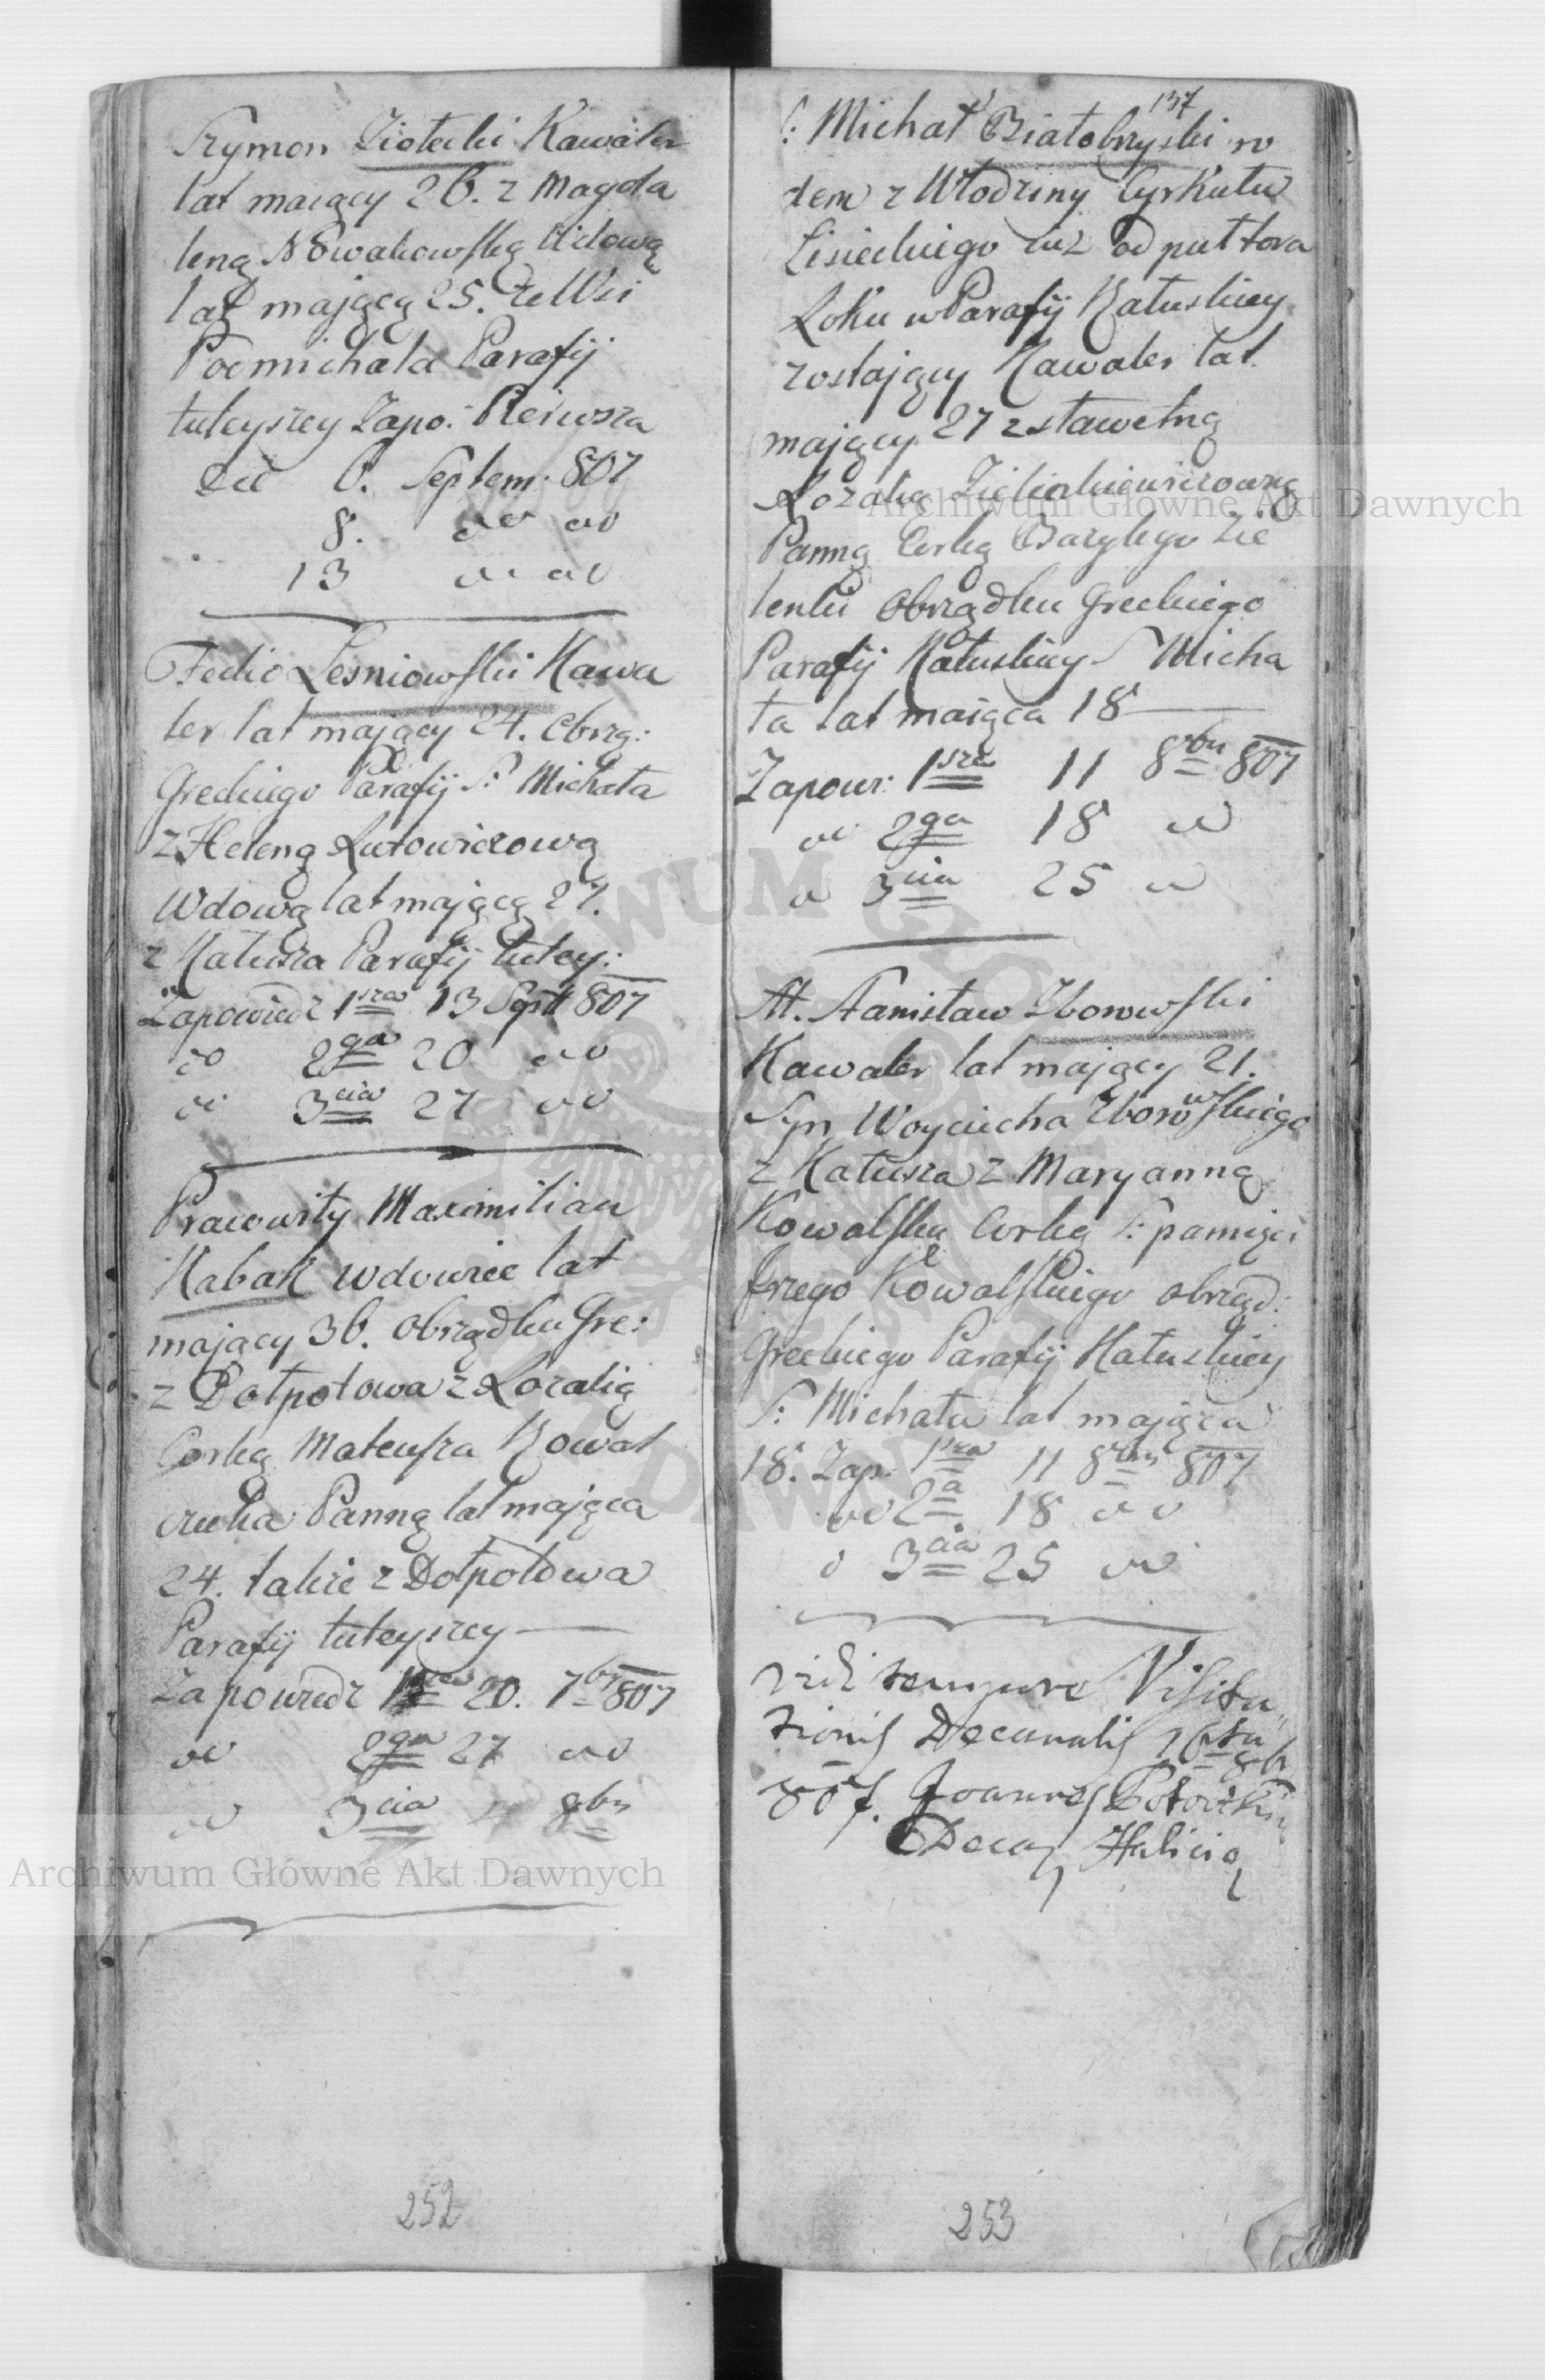 Szymon Ziołecki Kawaler
lat maiący 26. z Magda
leną Nowakowską Wdową
lat mającą 25. ze Wsi
Podmichala Parafij
tuteyszey Zapo: Pierwsza
die 6. Septem: 807
8. do do
13 do do
Fedio Lesniowski Kawa
ler lat mający 24. Obrzą:
Greckiego Parafij S: Michała
z Heleną Lutowiczową
Wdową lat mającą 27.
z Kałusza Parafij tutey:
Zapowiedz 1sza 13 Sept 807
do 2ga 20 do
do 3cia 27 do
Prawowity Maximilian
Kabak wdowiec lat
mający 36. obrządku Gre:
z Dołpotowa z Rozalią
Corką Mateusza Kowal
czuka Panną lat mająca
24. takze z Dołpotowa
Parafij tuteyszey
Zapowiedz 1sza 20. 7br 807
do 2ga 27 do
do 3cia 4 8bris
252
137
S: Michał Białobrzyski ro
dem z Włodziny Cyrkułu
Lisieckiego iuż od puł tora
Roku w Parafij Kałuskiey
zostający Kawaler lat
mający 27 z sławetną
Rozalią
Panną Corką Bazylego Zie
lenki obrządku Greckiego
Parafij Kałuskiey S Micha
ła lat maiąca 18
Zapow: 1sza 11 8bris 807
do 2ga 18 do
do 3cia 25 do
St. Stanisław Zborowski
Kawaler lat mający 21.
Syn Woyciecha Zborowskiego
z Kałusza z Maryanną
Kowalską Corką S: pamięci
Jrzego Kowalskiego obrząd:
Greckiego Parafij Kałuskiey
S: Michała lat mająca
18. Zap: 1sza 11 8bris 807
do 2a 18 do
do 3cia 25 do
vidi tempore Visita
tionis Decanalis 16ta 8b
807. Joannes
Decas Halicia
253
Archiwum Główne Akt Dawnych
Archiwum Główne Akt Dawnych